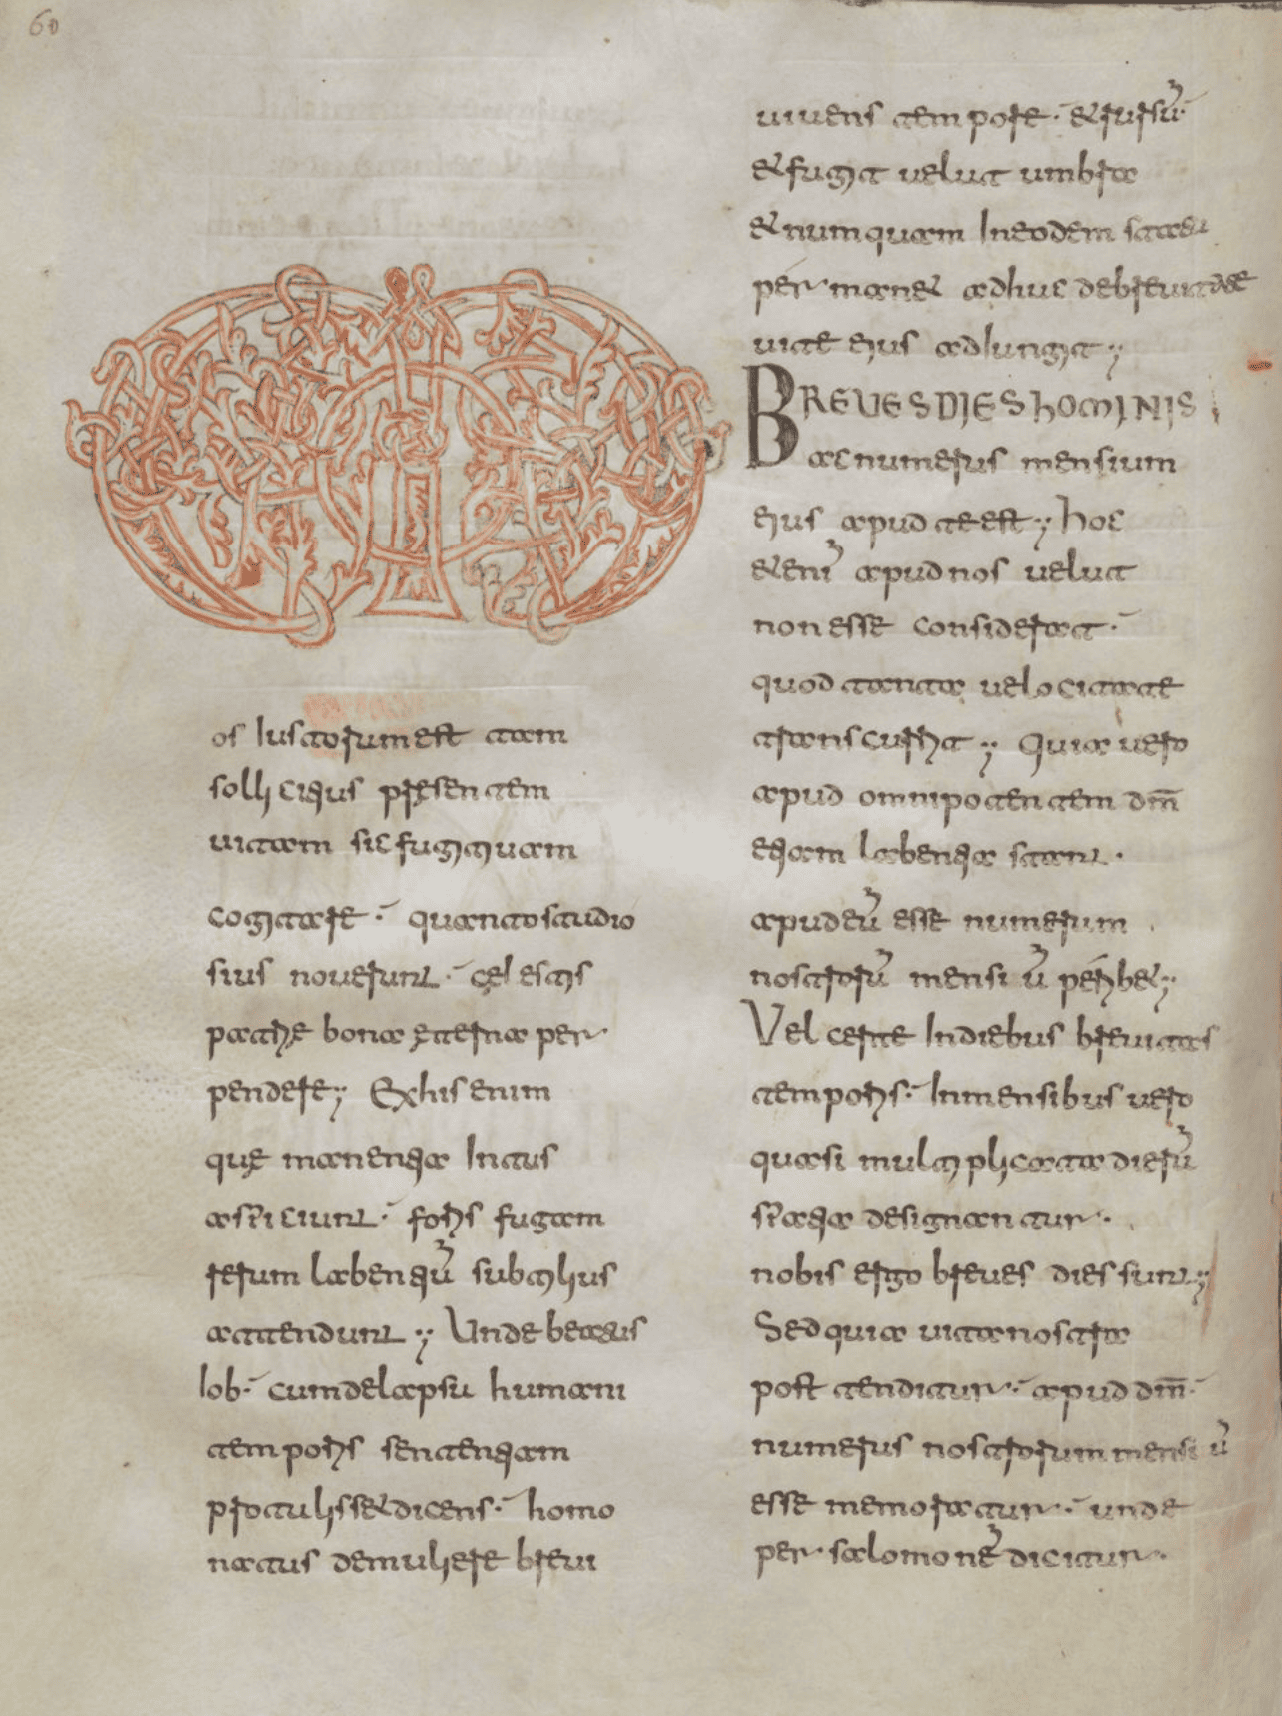 60
M
os Iustorum est tam
sollicitius pręsentem
uitam sic fugitiuam
cogitare. quanto studio
sius nouerunt. cęlestis
patrię bona ęterna per
pendere; Ex his enim
quę manentia Intus
aspiciunt. foris fugam
rerum labentiũ subtilius
attendunt; Unde beatus
Iob. cum de lapsu humani
temporis sententiam
protulisset dicens. homo
natus de muliere breui
uiuens tempore. & rursũ.
& fugit uelut umbra
& numquam In eodem statu
perman& adhuc de breuitate
uite eius adiungit;
BREUES DIES hOMINIS
ac numerus mensium
eius apud te est; hoc
&enĩ apud nos uelut
non esse considerat.
quod tanta uelocitate
transcurrit; Quia uero
apud omnipotentem dm̄
etiam labentia stant.
apud eũ esse numerum
nostrorũ mensiũ perhib&;
Vel certe In diebus breuitas
temporis. In mensibus uero
quasi multiplicata dierũ
spatia designantur.
nobis ergo breues dies sunt;
Sed quia uita nostra
post tenditur. apud dm̄.
numerus nostrorum mensiũ
esse memoratur. unde
per salomonẽ dicitur.